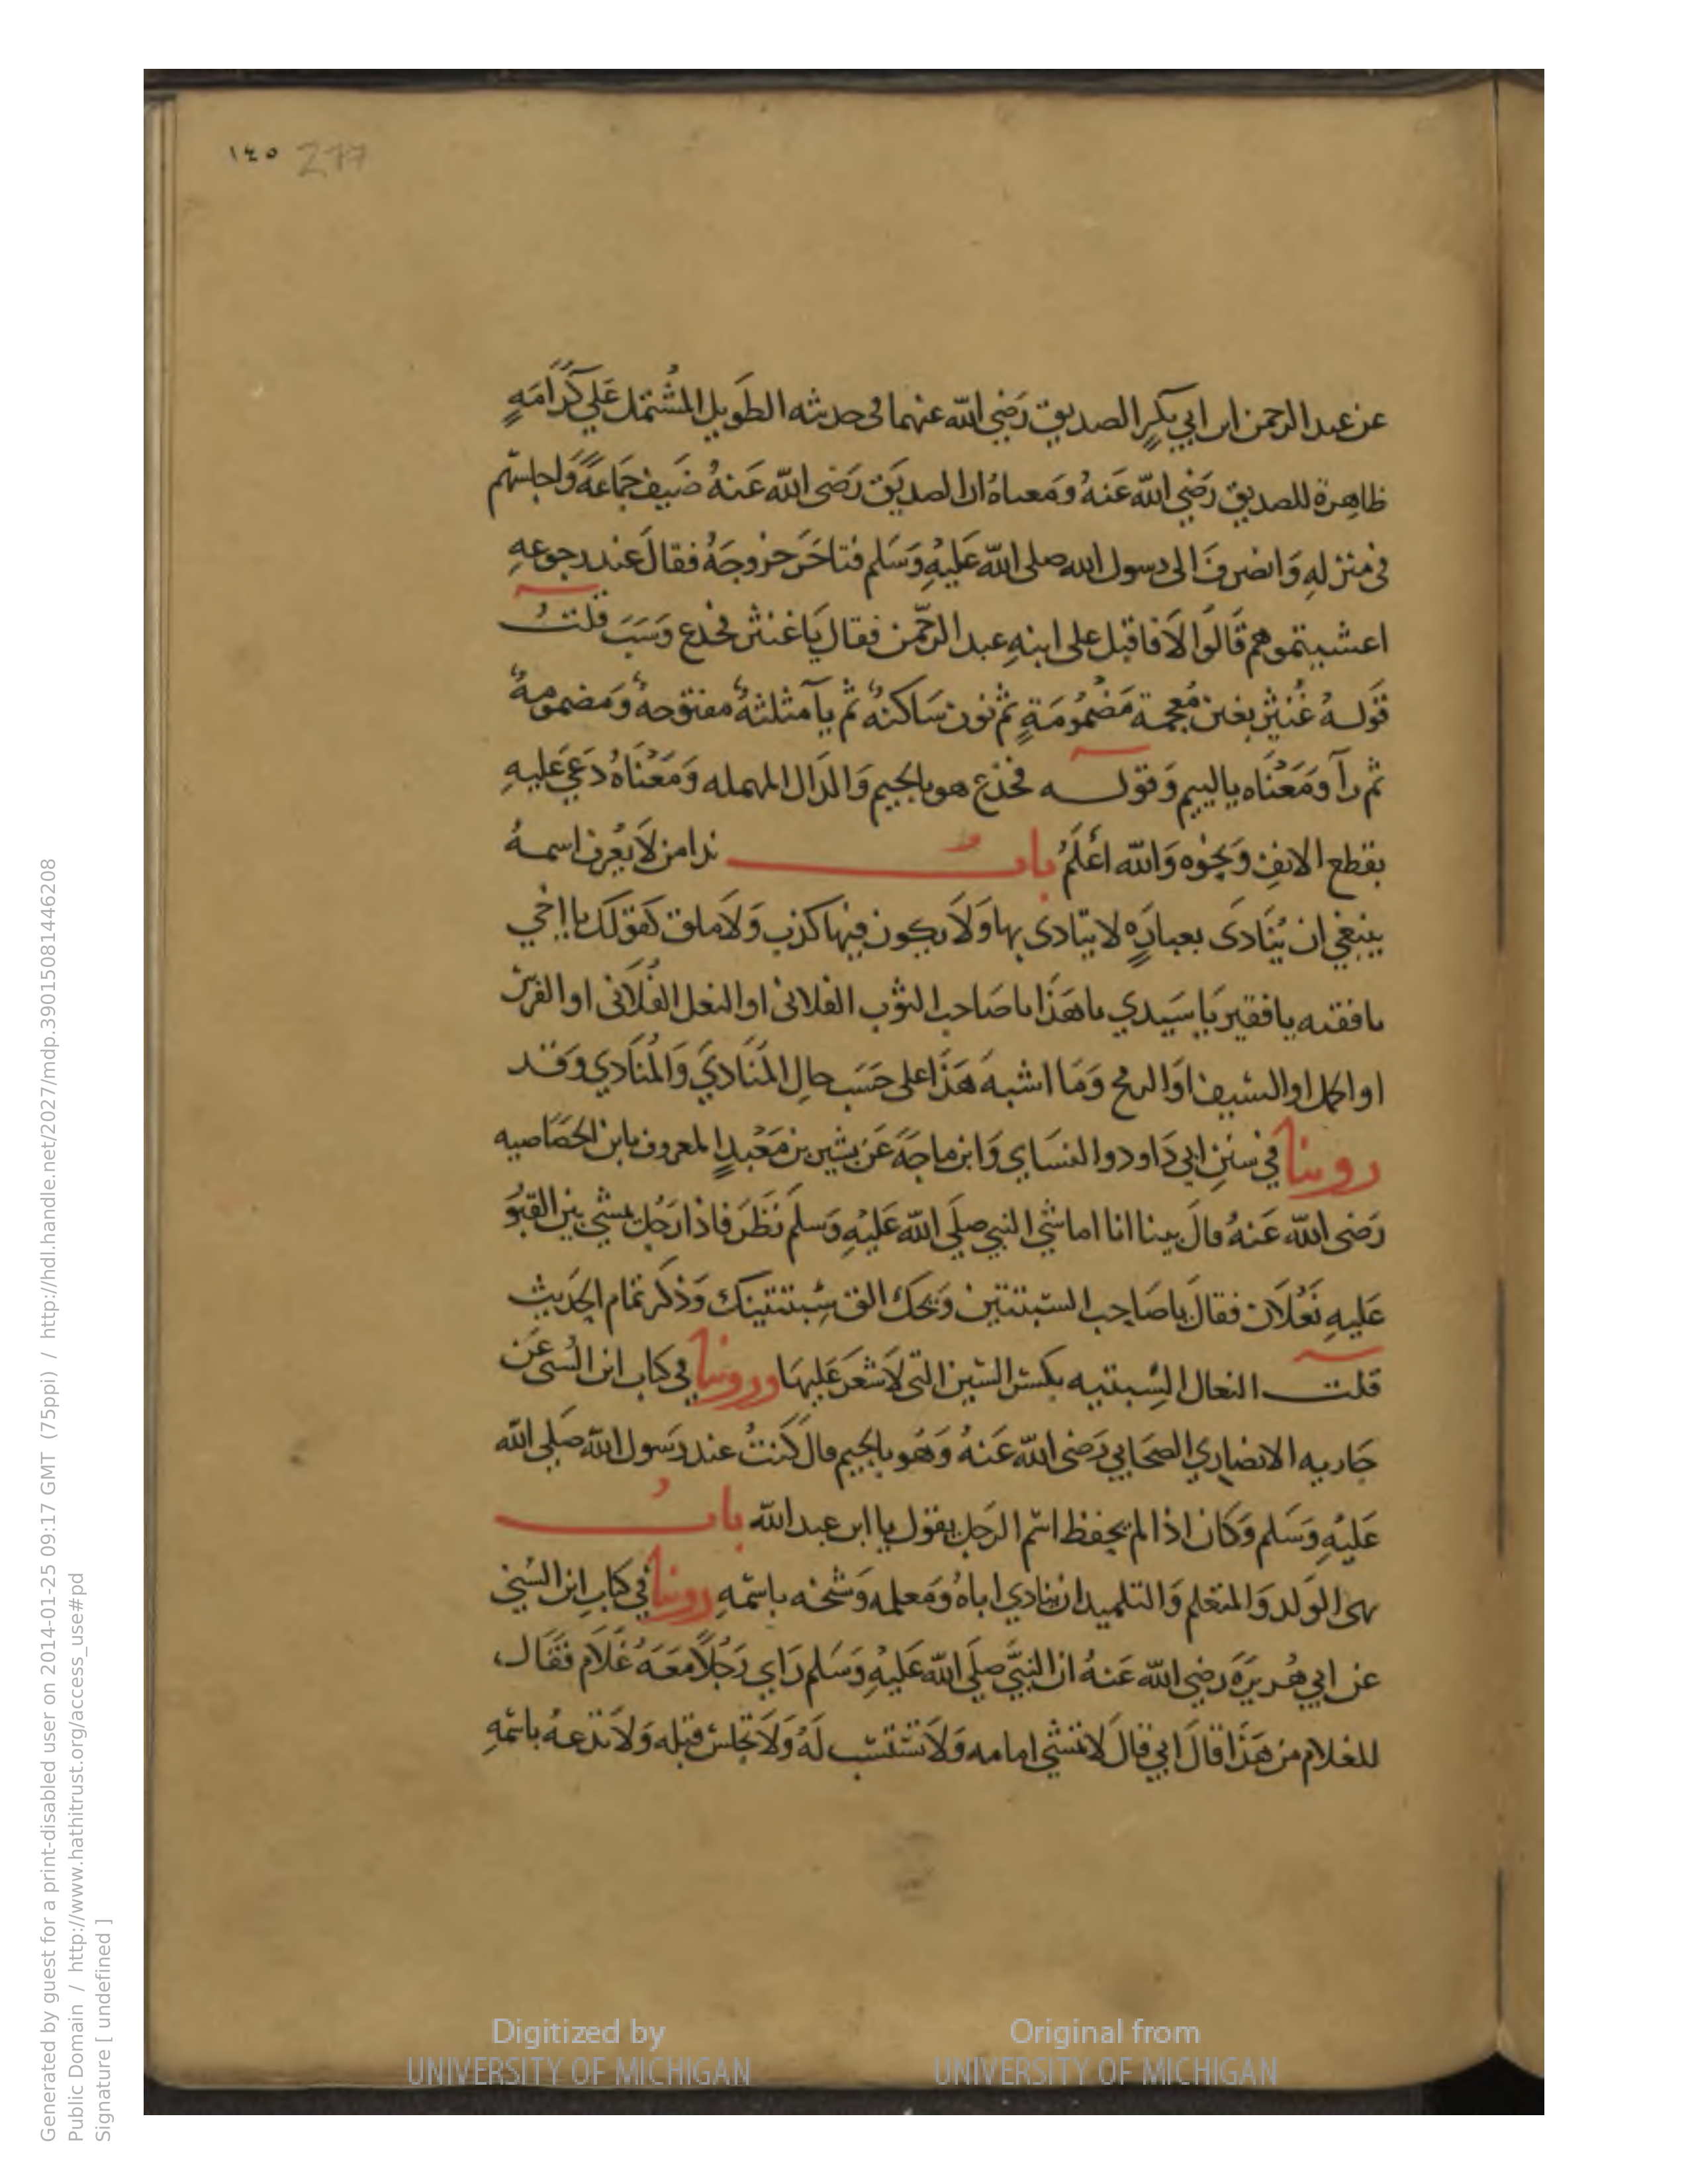 ١٤٥ 277
عن عبد الرحمن ابن ابي بكرٍ الصديق رَضي الله عنهما في حديثه الطَويل المُشتمل عَلي كَرَامَةٍ
ظاهِرة للصديق رَضِي الله عَنهُ وَمَعناهُ ان الصديَق رَضي الله عَنهُ ضَيف جَمَاعَةً وَاجلسهم
في منزلهِ وَانصَرفَ الى رسول الله صلى الله عَليهِ وَسَلم فتاخَرَ خروجَهُ فقالَ عند رجوعهِ
اعشيتموهم قَالوا لاَ فاقبَل على ابنهِ عبد الرحمن فقال يَا غنثر فجدع وَسَبَ قلتُ
قولهُ غُنثر بغين مُعجمة مَضمُومَةٍ ثم نون سَاكنة ثم ثآ مثلثة مفتوحة وَمَضمومة
ثم رآ وَمَعنَاه يا لييم وَقوله فجدّع هو بالجيم وَالدَال المهمله وَمَعْنَاهُ دَعَي عَليهِ
بقطع الانفِ وَنحوه وَالله اعْلَمُ بابُ ندا من لاَ يُعرف اسمهُ
ينبغي ان يُنَادَى بعبارَةٍ لا يتادى بها وَلاَ يكون فيها كذب وَلاَ ملق كقولك يا اخي
يا فقيه يا فقير يَا سَيدي يا هَذَا يا صَاحب الثوب الفلانى او النعل الفُلاَنى او الفرس
او الجمل او السَيف اوَ الرمح وَمَا اشبهَ هَذَا على حَسَب حالِ المُنَادَي وَالمُنَادي وَقد
روينا في سنَنِ ابي دَاود والنسَاي وَابن ماجَةَ عَن بشير بن مَعْبدٍ المعروف بابن الخصَاصيه
رَضي الله عَنهُ قالَ بينا انا اماشي النبي صلَى الله عَليهِ وَسلَم نَظَرَ فاذا رَجُل يمشي بين القبُو
عَليهِ نَعْلاَن فقالَ يا صَاحِب السبتتين وَيحك الق سِبتتيتك وَذكر تمام الحَديث
قلت النعال السِبتيه بكسر السّين التي لاَ شعَرَ عَليهَا وروينا في كتاب ابن السُني عَن
جَاريه الانصاري الصحَابي رَضي الله عَنهُ وَهُو بالجيم قال كَنتُ عند رَسول الله صَلي الله
عَليهِ وَسَلم وَكَان اذا لم يحفظ اسم الرَجل يقول يا ابن عبد الله بابُ
نهى الوَلد وَالمتعَلم وَالتلميد ان ينادي اباهُ وَمَعلمه وَشيخه باسمهِ روينا في كتابِ ابن السُني
عن ابي هُريَرَةَ رضي الله عَنهُ ان النبيَّ صلَى الله عَليهِ وَسَلم رَاي رَجُلاً مَعَهُ غُلاَم فقَال
للغلام من هَذَا قالَ ابي قالَ لاَ تمشي امامه وَلاَ تستسب لَهُ وَلاَ تجلس قبله وَلاَ تدعهُ باسمهِ
Generated by guest for a print-disabled user on 2014-01-25 09:17 GMT (75ppi) / http://hdl.handle.net/2027/mdp.39015081446208
Public Domain / http://www.hathitrust.org/access_use#pd
Signature [ undefined ]
Digitized by
UNIVERSITY OF MICHIGAN
Original from
UNIVERSITY OF MICHIGAN